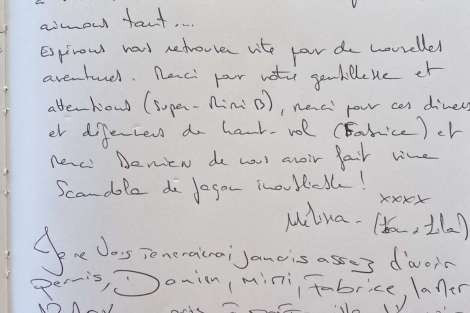 aimons tant...
Espérons vous retrouver vite pour de nouvelles
aventures. Merci pour votre gentillesse et
attentions (Super-Mimi B), merci pour ces diners
et déjeuners de haut-vol (Fabrice) et
merci Damien de nous avoir fait vivre
Scandola de façon inoubliable !
xxxx
Mélissa - (
Je ne vous remercierai jamais assez d'avoir
permis, Damien, mimi, Fabrice, la mer